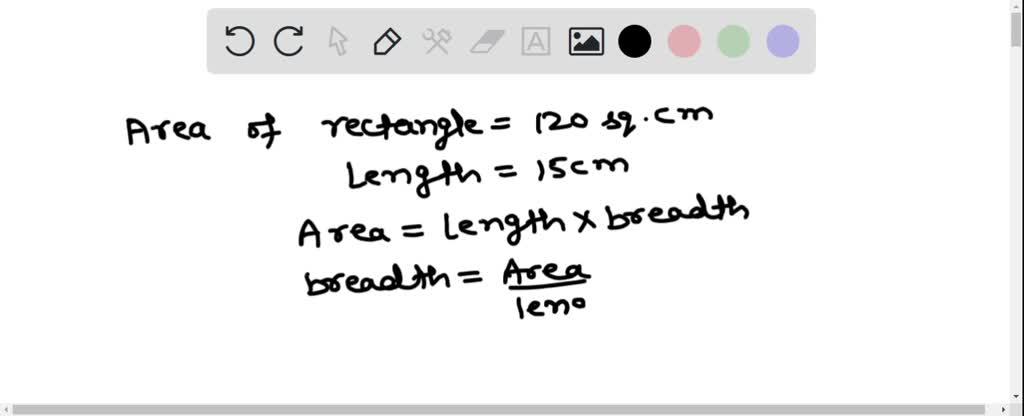 Area of rectangle = 120 sq.cm
Length = 15cm
Area = length × breadth
breadth = Area
leno